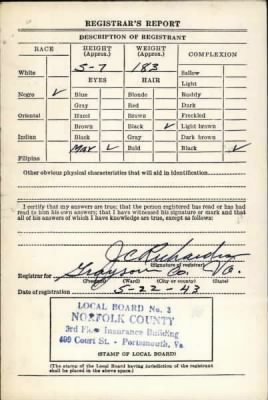 REGISTRAR'S REPORT
DESCRIPTION OF REGISTRANT
RACE HEIGHT (Approx.) WEIGHT (Approx.) COMPLEXION
5-7 183
White EYES HAIR Sallow
Light
Negro ✓ Blue Blonde Ruddy
Gray Red Dark
Oriental Hazel Brown Freckled
Brown Black ✓ Light brown
Indian Black Gray Dark brown
✓ Bald Black ✓
Filipino
Other obvious physical characteristics that will aid in identification
I certify that my answers are true; that the person registered has read or has had
read to him his own answers; that I have witnessed his signature or mark and that
all of his answers of which I have knowledge are true, except as follows:
J C Richardson
(Signature of registrar)
Registrar for Grayson Co. Va.
(Precinct) (Ward) (City or county) (State)
Date of registration 5-22-43
LOCAL BOARD No. 2
NORFOLK COUNTY
3rd Floor Insurance Building
409 Court St. - Portsmouth, Va.
(STAMP OF LOCAL BOARD)
(The stamp of the Local Board having jurisdiction of the registrant
shall be placed in the above space.)